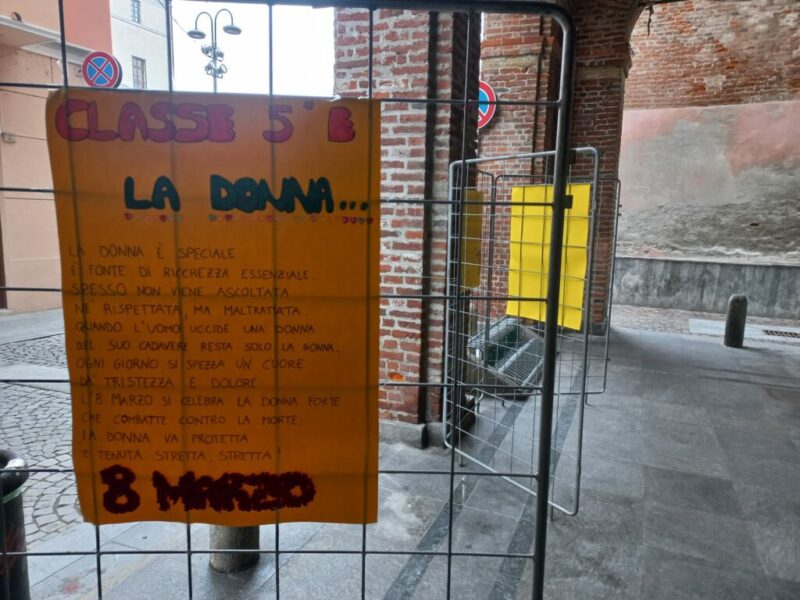 CLASSE 5° E
LA DONNA...
LA DONNA È SPECIALE
È FONTE DI RICCHEZZA ESSENZIALE.
SPESSO NON VIENE ASCOLTATA
NÉ RISPETTATA, MA MALTRATTATA.
QUANDO L'UOMO UCCIDE UNA DONNA
DEL SUO CADAVERE RESTA SOLO LA GONNA.
OGNI GIORNO SI SPEZZA UN CUORE
DA TRISTEZZA E DOLORE
L'8 MARZO SI CELEBRA LA DONNA FORTE
CHE COMBATTE CONTRO LA MORTE.
LA DONNA VA PROTETTA
E TENUTA STRETTA, STRETTA!
8 MARZO